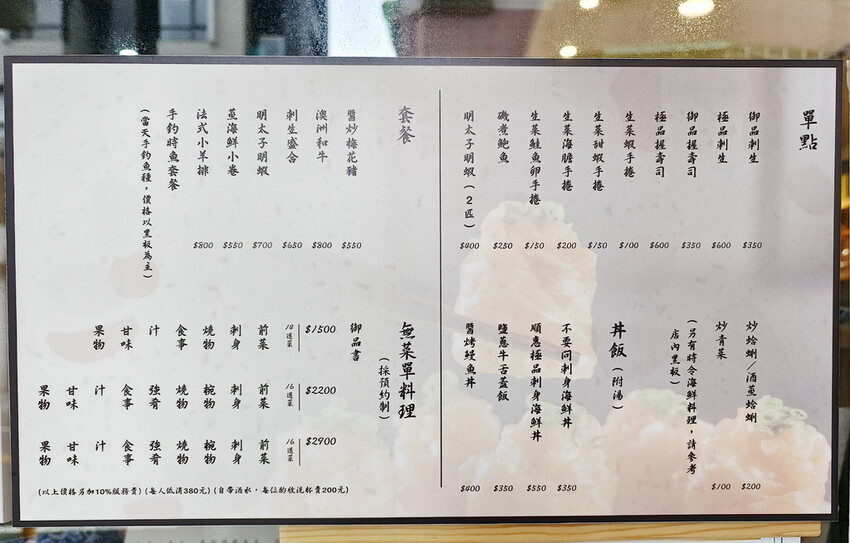 單點
御品刺生 $350
極品刺生 $600
御品握壽司 $350
極品握壽司 $600
生菜蝦手捲 $100
生菜甜蝦手捲 $150
生菜海膽手捲 $200
生菜鮭魚卵手捲 $150
磯煮鮑魚 $250
明太子明蝦(2匹) $400
炒蛤蜊/酒蒸蛤蜊 $200
炒青菜 $100
(另有時令海鮮料理,請參考
店內黑板)
丼飯(附湯)
不要問刺身海鮮丼 $350
順惠極品刺身海鮮丼 $550
鹽蔥牛舌蓋飯 $350
醬烤鰻魚丼 $400
套餐
醬炒梅花豬 $550
澳洲和牛 $800
刺生盛合 $650
明太子明蝦 $700
蒸海鮮小卷 $550
法式小羊排 $800
手釣時魚套餐
(當天手釣魚種,價格以黑板為主)
無菜單料理
(採預約制)
御品書
$1500 14道菜 前菜 刺身 燒物 食事 汁 甘味 果物
$2200 16道菜 前菜 刺身 椀物 燒物 強肴 食事 汁 甘味 果物
$2900 16道菜 前菜 刺身 椀物 燒物 強肴 食事 汁 甘味 果物
(以上價格另加10%服務費)(每人低消380元)(自帶酒水,每位酌收洗杯費200元)